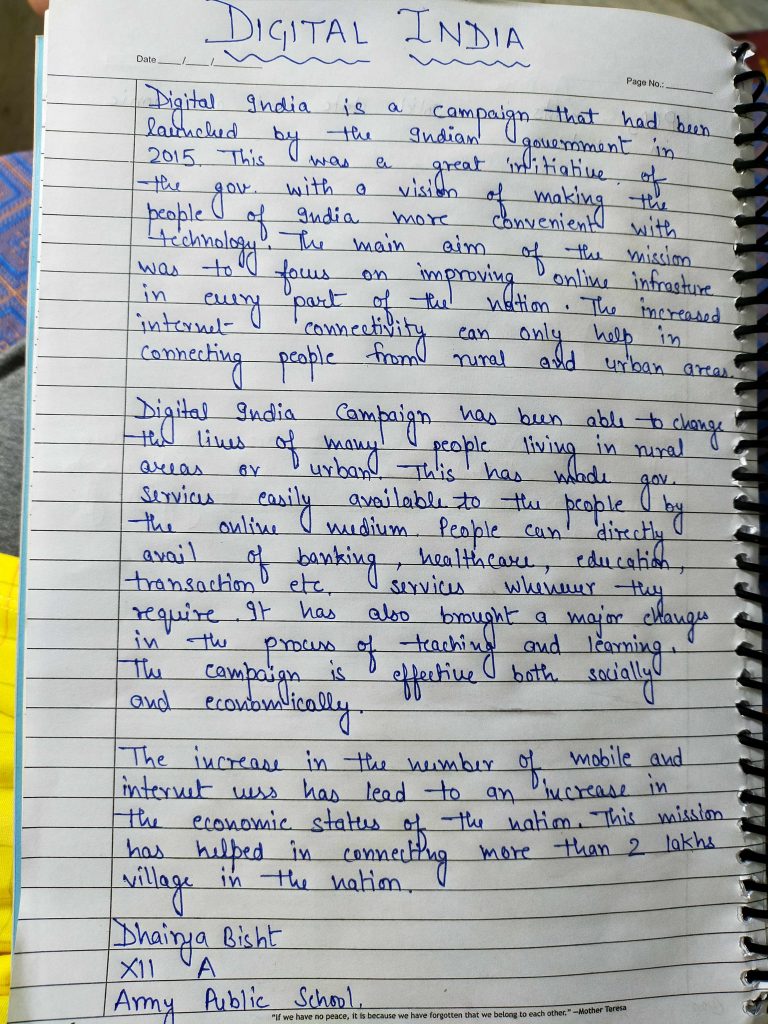 DIGITAL INDIA
Date ___/___/______
Page No.: ________
Digital India is a campaign that had been
launched by the Indian government in
2015. This was a great initiative of
the gov. with a vision of making the
people of India more convenient with
technology. The main aim of the mission
was to focus on improving online infrasture
in every part of the nation. The increased
internet connectivity can only help in
connecting people from rural and urban areas.
Digital India Campaign has been able to change
the lives of many people living in rural
areas or urban. This has made gov.
services easily available to the people by
the online medium. People can directly
avail of banking, healthcare, education,
transaction etc. services whenever they
require. It has also brought a major changes
in the process of teaching and learning.
The campaign is effective both socially
and economically.
The increase in the number of mobile and
internet uses has lead to an increase in
the economic status of the nation. This mission
has helped in connecting more than 2 lakhs
village in the nation.
Dhairya Bisht
XII A
Army Public School.
"If we have no peace, it is because we have forgotten that we belong to each other." —Mother Teresa